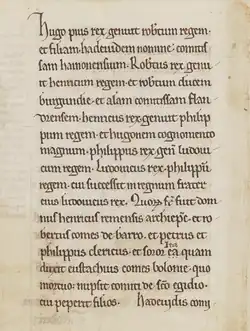 Hugo pius rex genuit rob̅tum regem·
et filiam hadeuidem nomine· comitis
sam hainonensium· Rob̅tus rex genu
it henricum regem· et rob̅tum ducem
burgundie· et alam comitissam flan
drensem· henricus rex genuit philip
pum regem· et hugonem cognomento
magnum· philippus rex gen̅ ludoui
cum regem· Ludouicus rex philippu̅
regem· cui successit in regnum frater
eius ludouicus rex· Quoꝝ fr̅ fuit dom
nus henricus remensis archiep̅c· et ro
bertus comes de · et petrus et
philippus clericus· et soror
Ita
quam
duxit eustachius comes bolonie· quo
mortuo· nupsit comiti de sc̅o egidio·
eiq peperit filios· Hadeuidis comi